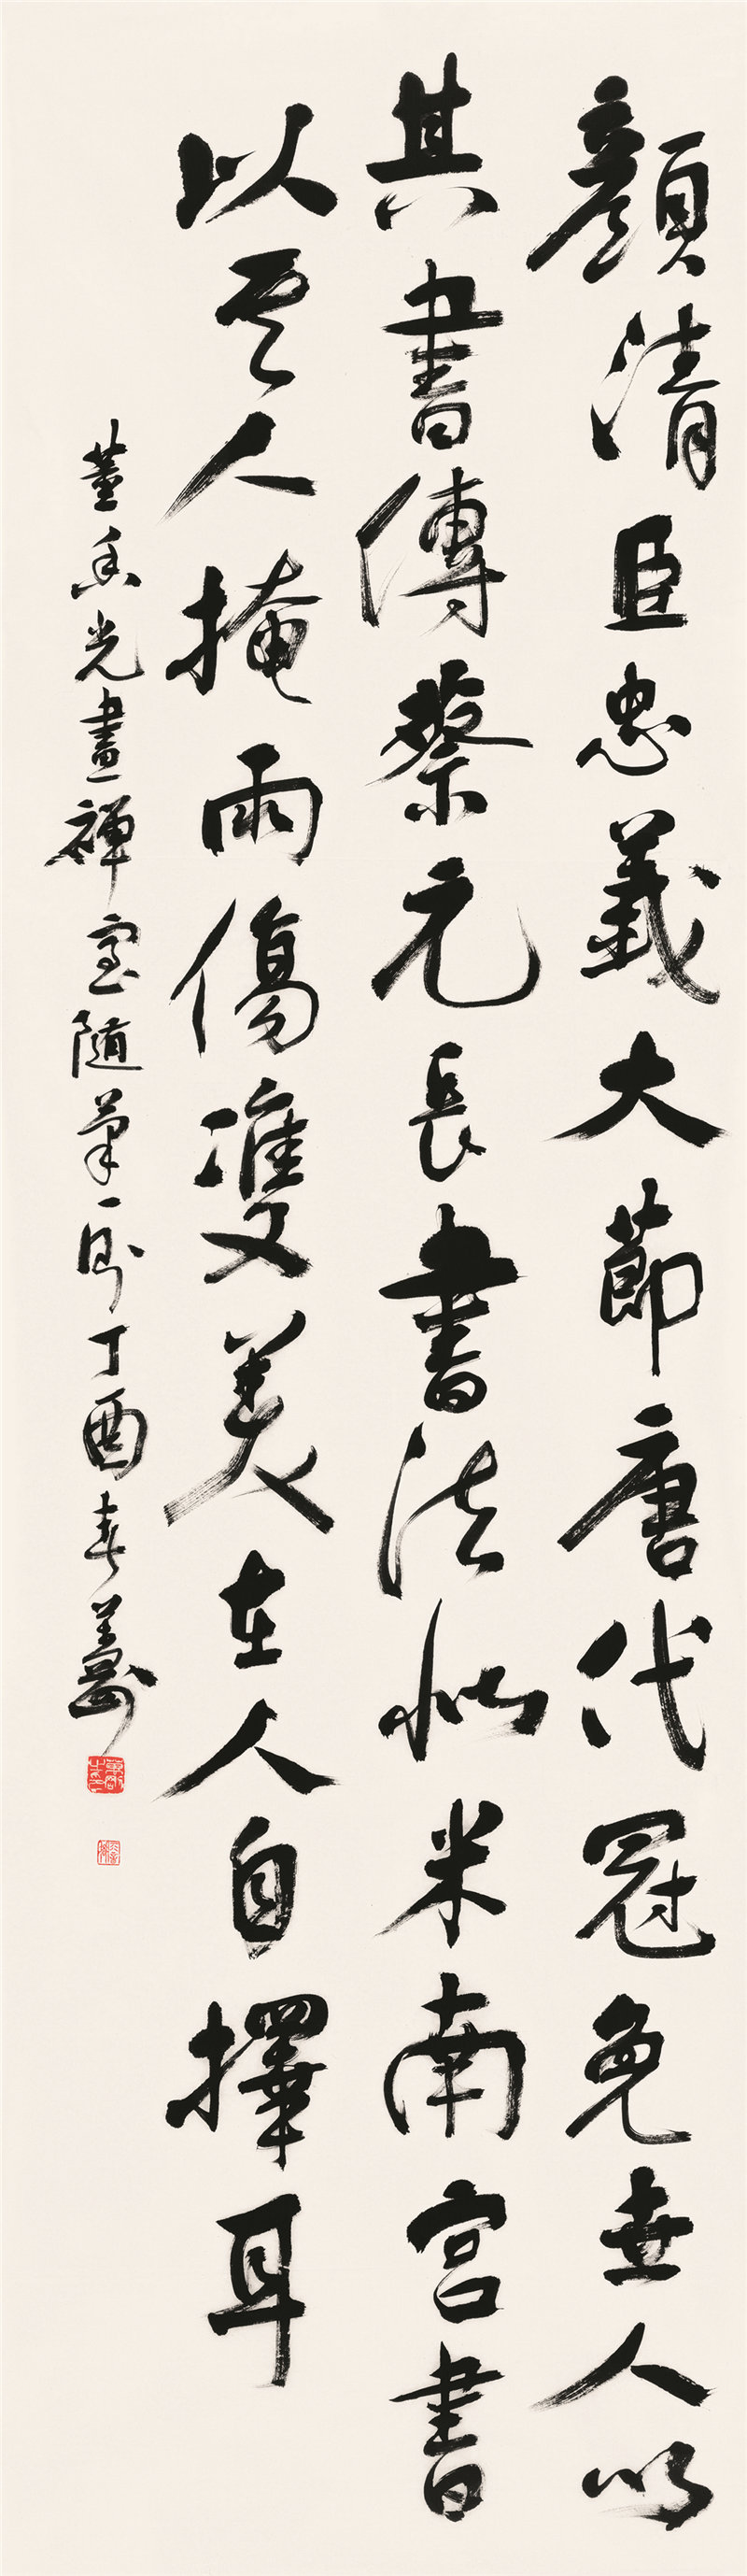 顏清臣忠義大節唐代冠冕世人以
其書傳蔡元長書法似米南宮書
以其人掩兩傷雙美在人自擇耳
董香光畫禪室隨筆一則丁酉春